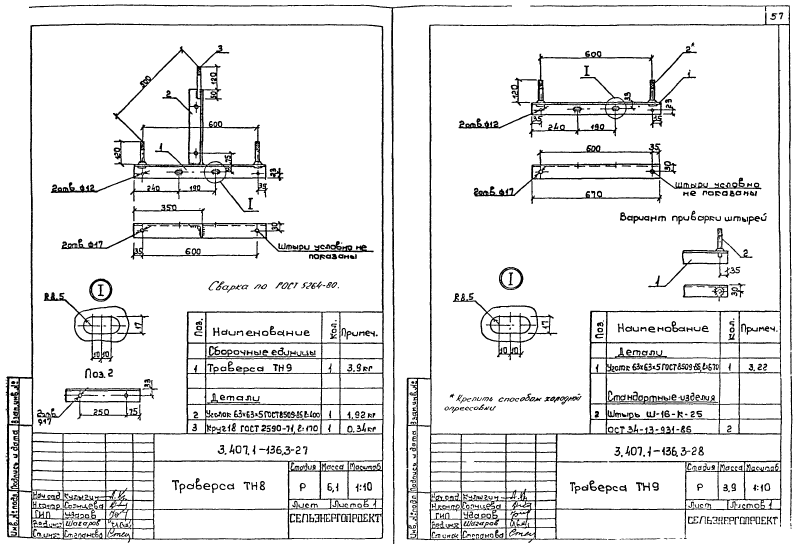 57
1
3
600
120
30
2
600
120
1
75
33
2отв. ф12
240
190
35
I
350
30
2отв. ф17
35
600
Штыри условно не
показаны
I
Сварка по ГОСТ 5264-80.
R8.5
17
10 10
Поз. 2
33
2отв.
ф17
250
75
Поз.
Наименование
Кол.
Примеч.
Сборочные единицы
1 Траверса ТН9 1 3.9 кг
Детали
2 Уголок 63×63×5 ГОСТ 8509-86, ℓ=400 1 1,92 кг
3 Круг 18 ГОСТ 2590-71, ℓ=170 1 0.34 кг
3.407.1-136.3-27
Траверса ТН8
Стадия Масса Масштаб
Р 6,1 1:10
Лист Листов 1
СЕЛЬЭНЕРГОПРОЕКТ
Нач.отд. Кулыгин
Н.контр. Солнцева
ГИП Ударов
Вед.инж. Шагаров
Ст.инж. Степанова
Инв.№подл. Подпись и дата Взам.инв.№
600
2*
I
1
120
33
23
2отв. ф12
35
240
190
600
35
30
2отв. ф17
670
Штыри условно
не показаны
Вариант приварки штырей
2
1
35
30
I
R8.5
17
10 10
* Крепить способом холодной
опрессовки
Поз.
Наименование
Кол.
Примеч.
Детали
1 Уголок 63×63×5 ГОСТ 8509-86, ℓ=670 1 3.22
Стандартные изделия
2 Штырь Ш-16-К-25
ОСТ 34-13-931-86 2
3.407.1-136.3-28
Траверса ТН9
Стадия Масса Масштаб
Р 3,9 1:10
Лист Листов 1
СЕЛЬЭНЕРГОПРОЕКТ
Нач.отд. Кулыгин
Н.контр. Солнцева
ГИП Ударов
Вед.инж. Шагаров
Ст.инж. Степанова
Инв.№подл. Подпись и дата Взам.инв.№